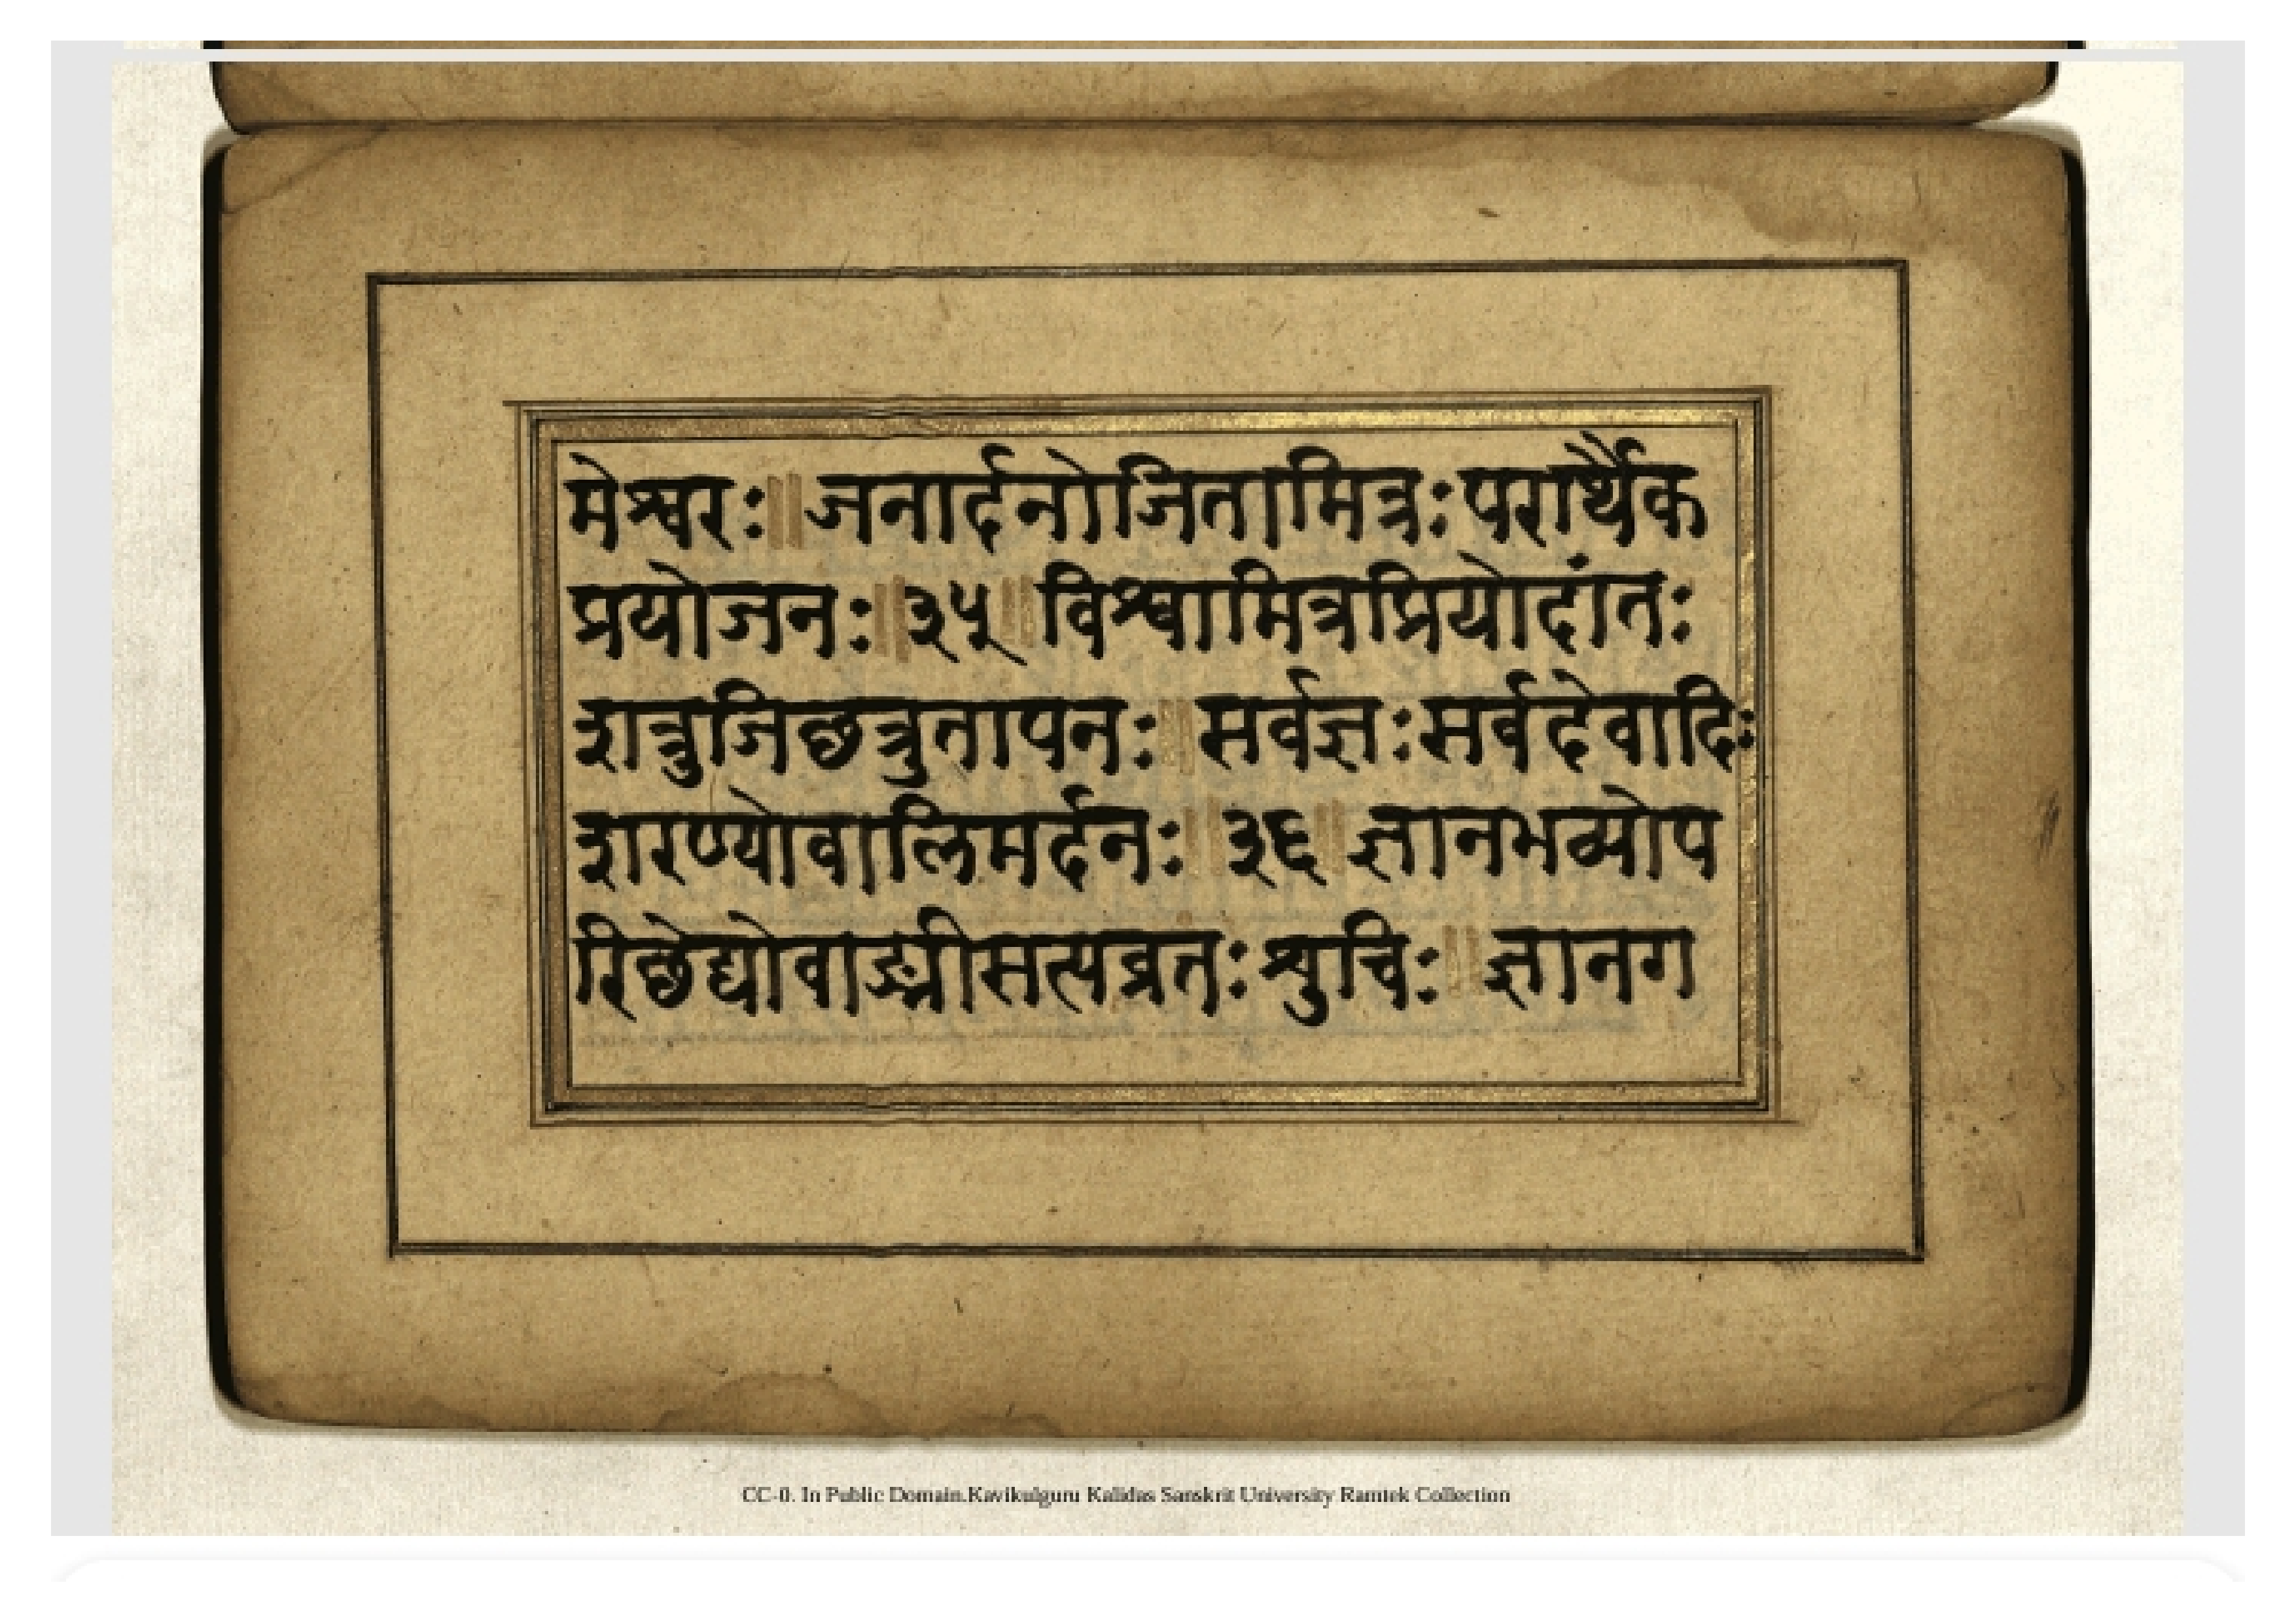 मेश्वरः॥जनार्दनोजितामित्रःपरार्थैक
प्रयोजनः॥३५॥विश्वामित्रप्रियोदांतः
शत्रुजिछत्रुतापनः॥सर्वज्ञःसर्वदेवादिः
शरण्योवालिमर्दनः॥३६॥ज्ञानभव्योप
रिछेद्योवाङ्मीसत्यव्रतःश्युचिः॥ज्ञानग
CC-0. In Public Domain.Kavikulguru Kalidas Sanskrit University Ramtek Collection